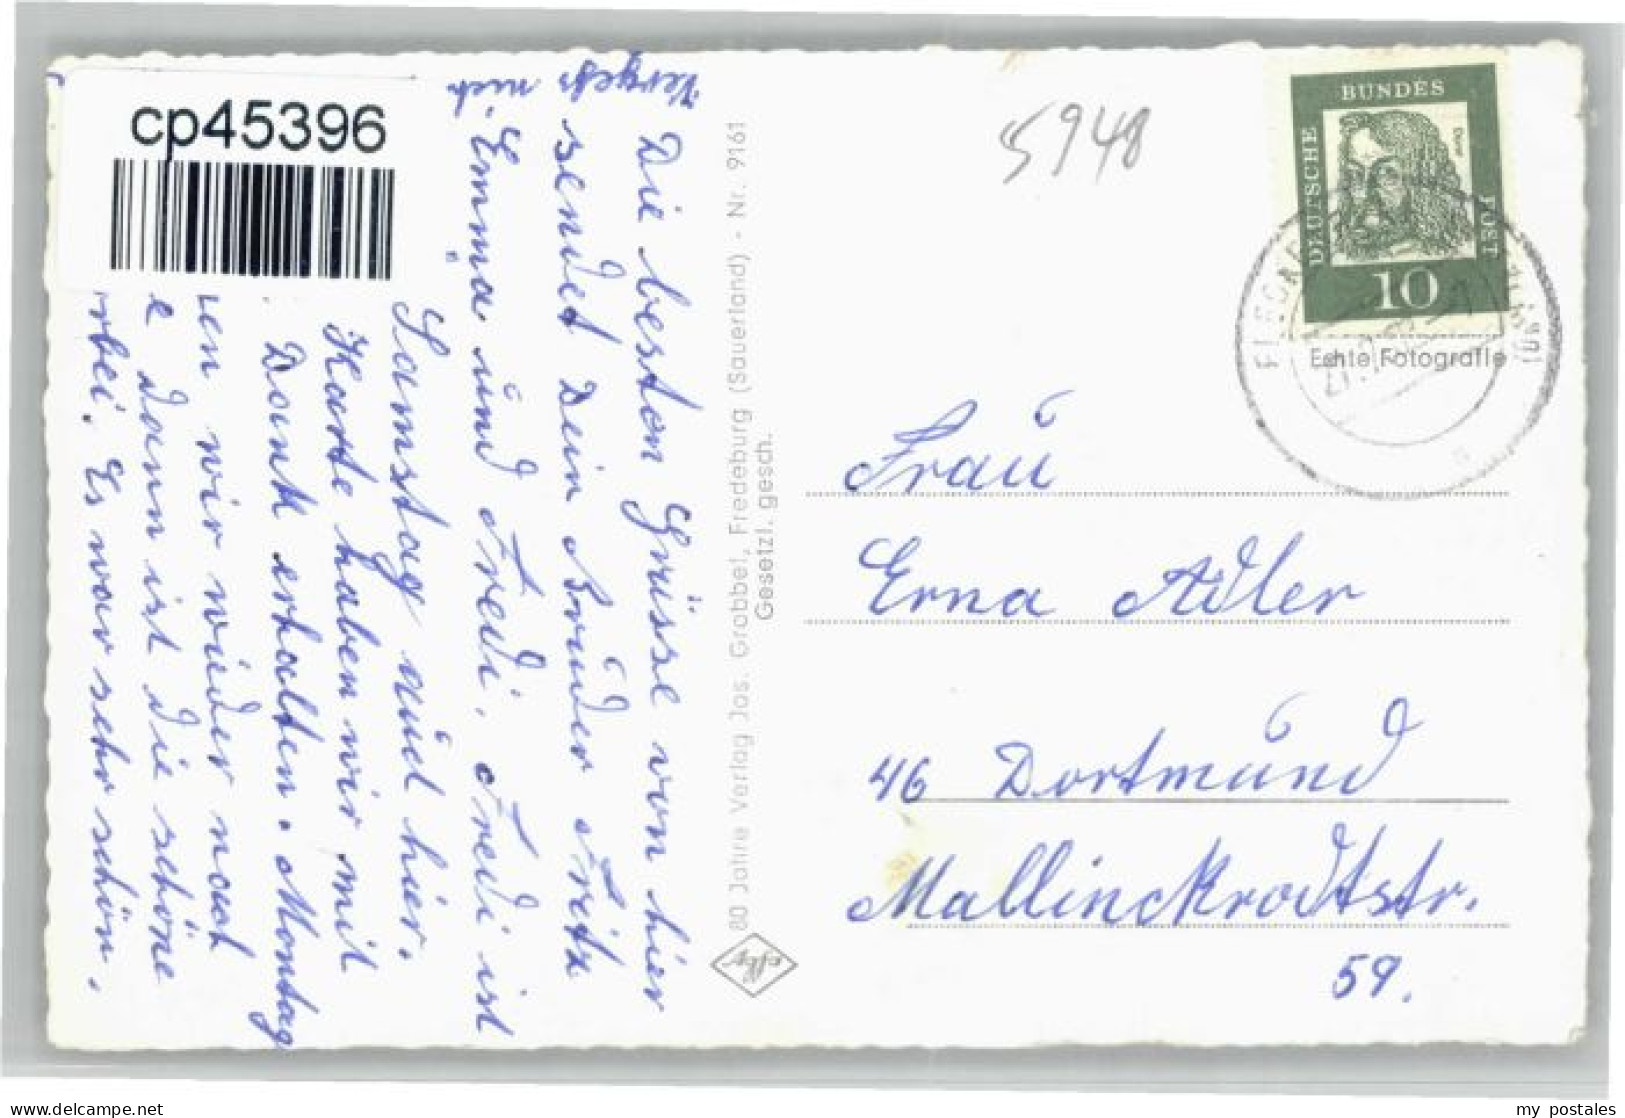 cp45396
Vergeß
mich
Die besten Grüsse von hier
sendet Dein Bruder Fritz
Emma und Fredi. Fredi ist
Samstag auch hier.
Karte haben wir mit
Dank erhalten. Montag
wir wieder nach
dann ist die schöne
Es war sehr schön.
80 Jahre Verlag Jos. Grobbel, Fredeburg (Sauerland) - Nr. 9161
Gesetzl. gesch.
5948
DEUTSCHE BUNDES POST
Dürer
10
Echte Fotografie
Frau
Erna Adler
46 Dortmund
Mallinckrodtstr.
59.
my postales